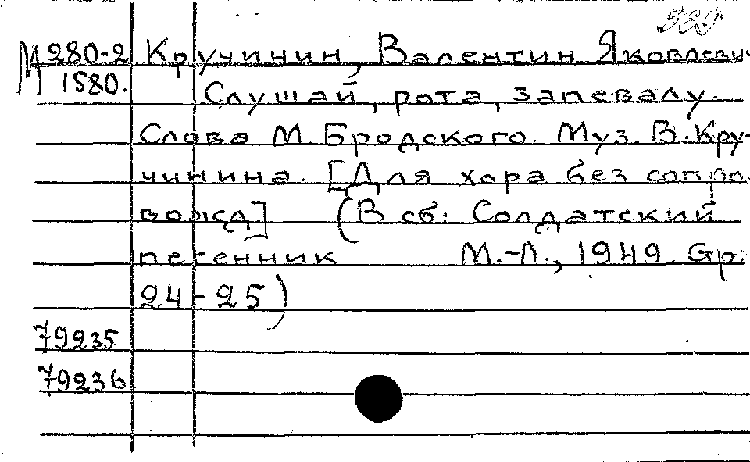 М 280-2 Кручинин, Валентин Яковлевич
1580. Слушай, рота, запевалу.
Слова М. Бродского. Муз. В. Кру-
чинина. [Для хора без сопро-
вожд] (В сб: Солдатский
песенник М.-Л., 1949 Gр.
24-25)
79235
79236